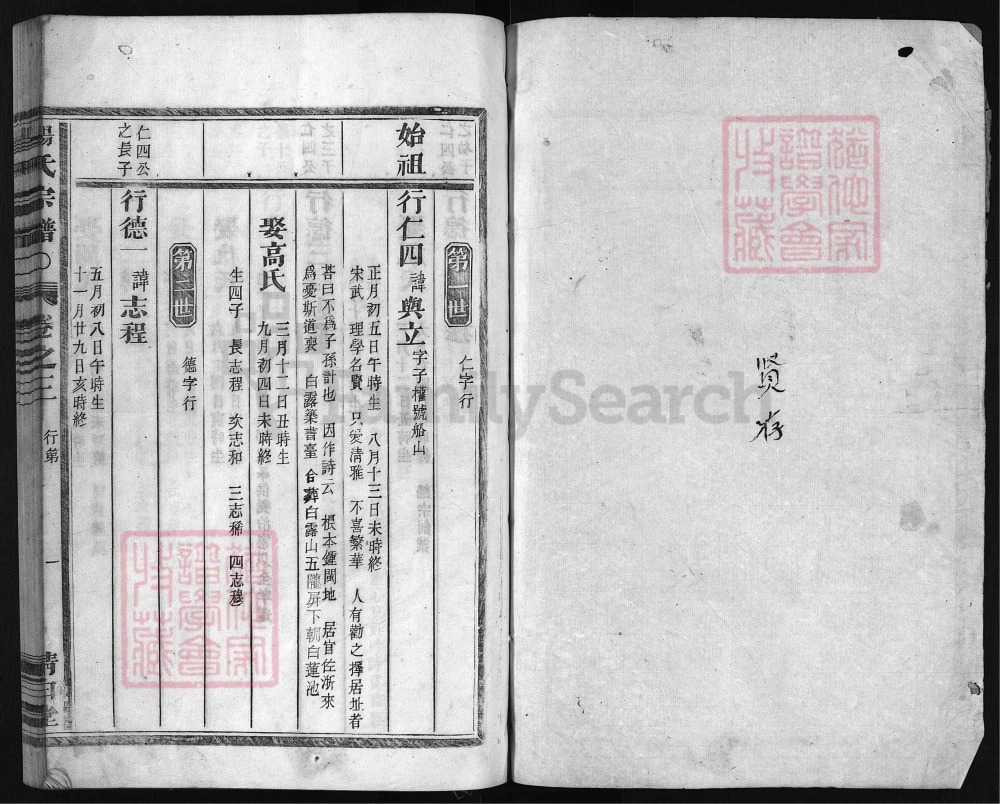 賢存
第一世
仁字行
始祖 行仁四 諱與立 字子權號船山
正月初五日午時生 八月十三日未時終
宋武 理學名賢 只愛清雅 不喜繁華 人有勸之擇居址者
答曰不爲子孫計也 因作詩云 根本鍾閩地 居官佐浙來
爲憂斯道喪 白露築書臺 合葬白露山五隴屏下朝白蓮池
娶高氏 三月十二日丑時生
九月初四日未時終
生四子 長志程 次志和 三志稀 四志穆
第二世
德字行
仁四公
之長子
行德一 諱志程
五月初八日午時生
十一月廿九日亥時終
楊氏宗譜 卷之三 行第 一 清白堂
FamilySearch